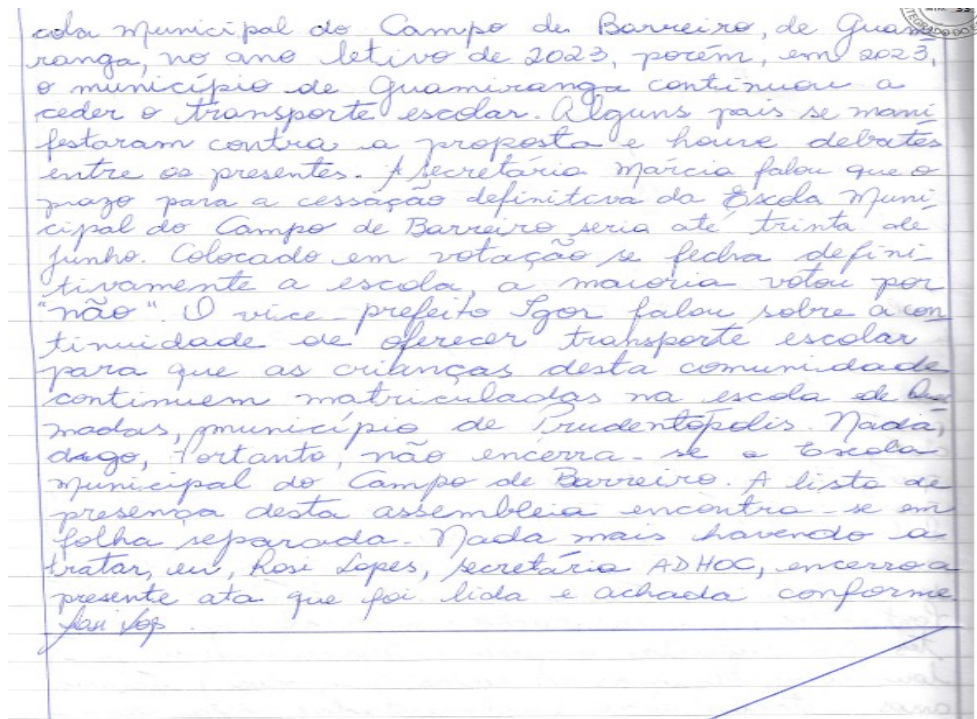 cola Municipal do Campo de Barreiro, de Guami
ranga, no ano letivo de 2023, porém, em 2023,
o município de Guamiranga continuou a
ceder o transporte escolar. Alguns pais se mani
festaram contra a proposta e houve debates
entre os presentes. A secretária Márcia falou que o
prazo para a cessação definitiva da Escola Muni
cipal do Campo de Barreiro seria até trinta de
junho. Colocado em votação se fecha defini
tivamente a escola, a maioria votou por
"não". O vice-prefeito Igor falou sobre a con
tinuidade de oferecer transporte escolar
para que as crianças desta comunidade
continuem matriculadas na escola de Quei
madas, município de Prudentópolis. Nada,
digo, Portanto, não encerra-se a Escola
Municipal do Campo de Barreiro. A lista de
presença desta assembleia encontra-se em
folha separada. Nada mais havendo a
tratar, eu, Rosi Lopes, secretária ADHOC, encerro a
presente ata que foi lida e achada conforme.